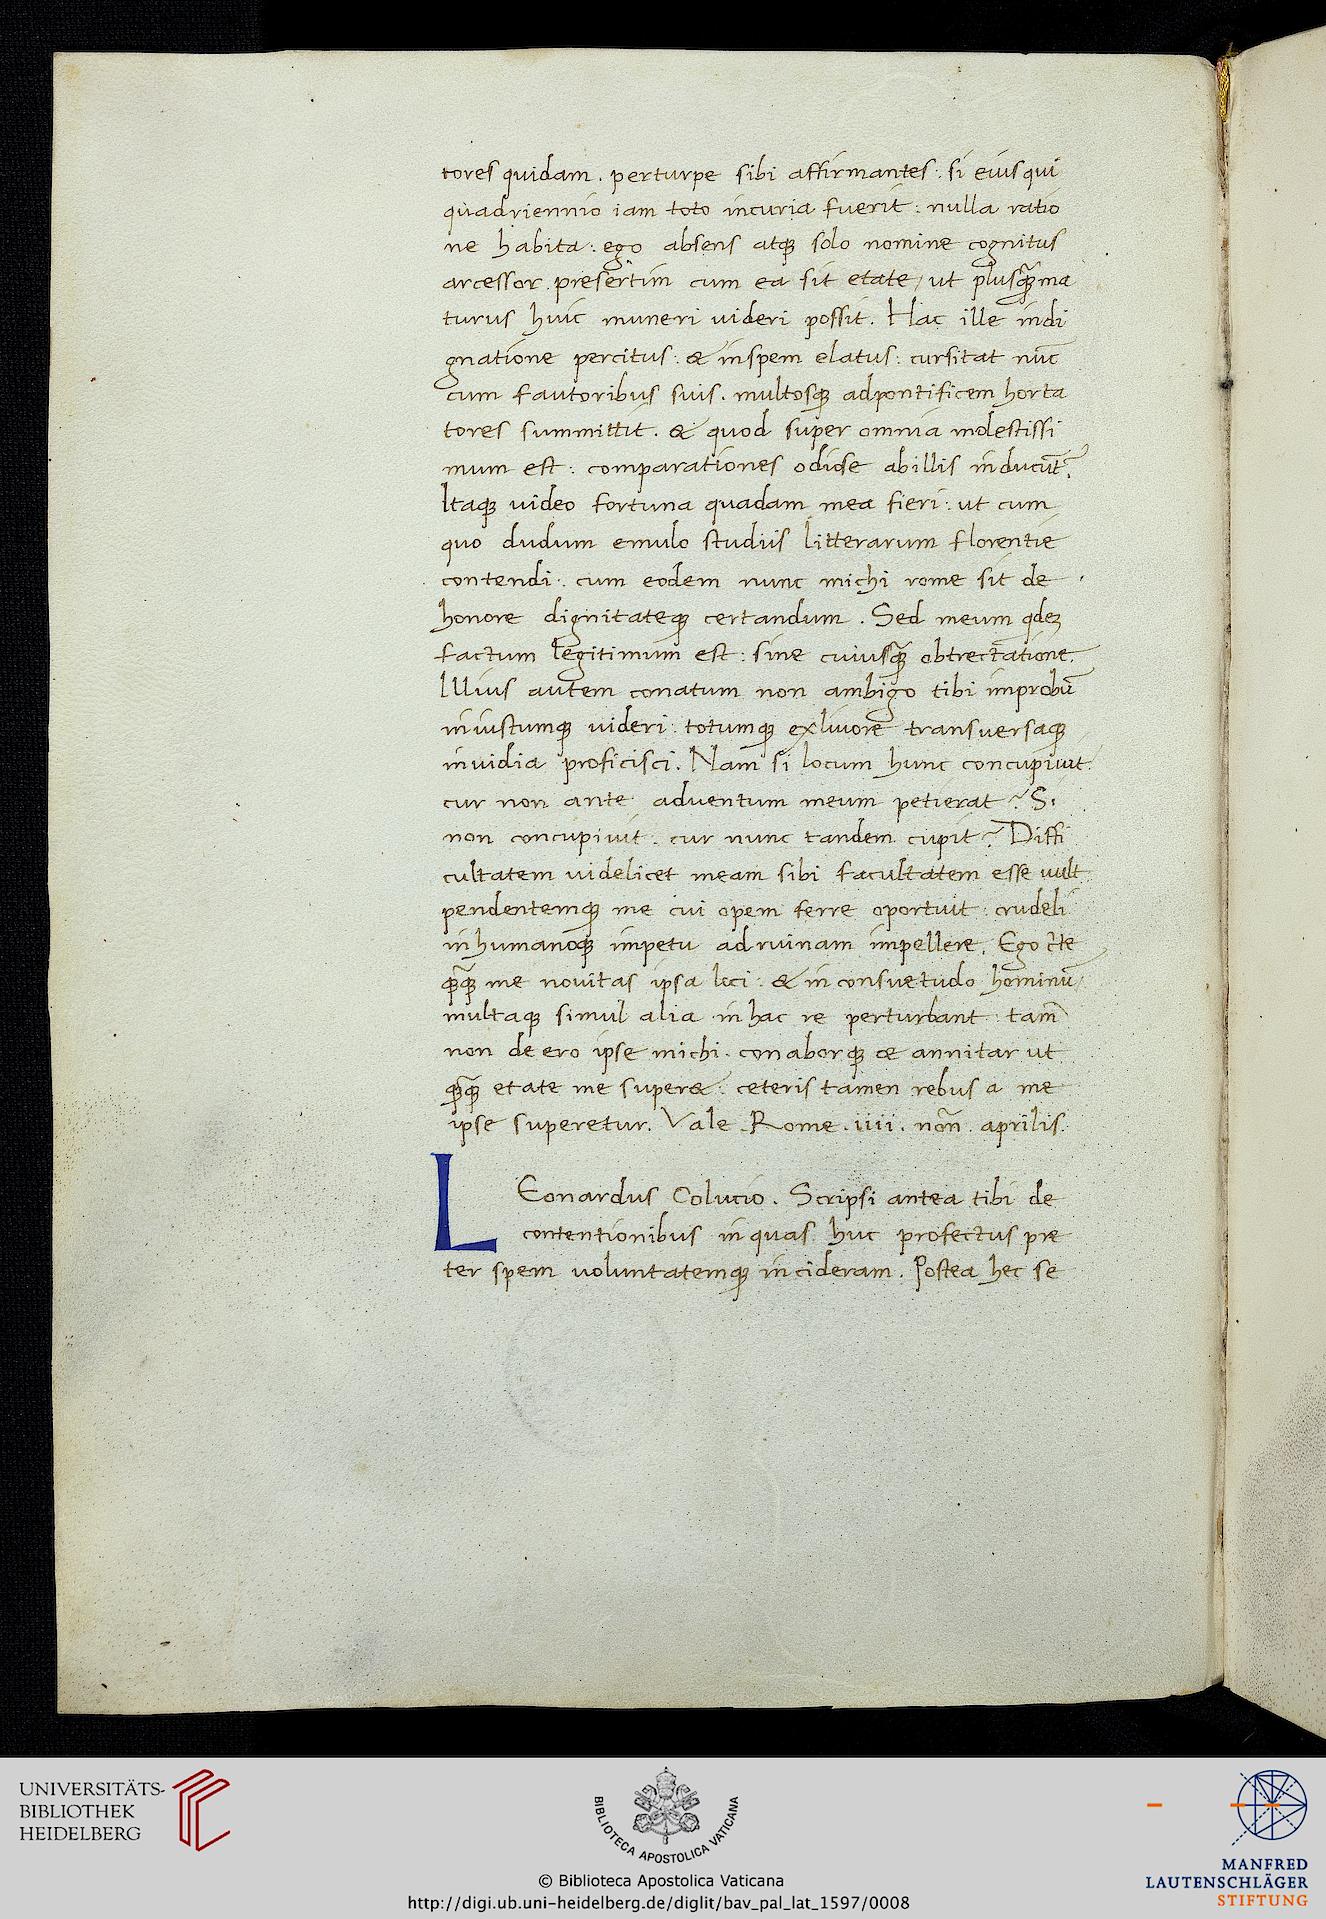 tores quidam . perturpe sibi affirmantes . si eius qui
quadriennio iam toto incuria fuerit : nulla ratio
ne habita : ego absens atq; solo nomine cognitus
arcessor . presertim cum ea sit etate / ut plusq̃ma
turus huic muneri uideri possit . Hac ille indi
gnatione percitus : & inspem elatus : cursitat nũc
cum fautoribus suis . multosq; adpontificem horta
tores summittit . & quod super omnia molestissi
mum est : comparationes odiose abillis inducũt .
Itaq; uideo fortuna quadam mea fieri : ut cum
quo dudum emulo studiis litterarum florentie
contendi . cum eodem nunc michi rome sit de
honore dignitateq; certandum . Sed meum qdez
factum legitimum est : sine cuiusq̃ obtrectatione .
Illius autem conatum non ambigo tibi improbũ
iniustumq; uideri : totumq; exliuore transuersaq;
inuidia proficisci . Nam si locum hunc concupiuit .
cur non ante aduentum meum petierat ? Si
non concupiuit . cur nunc tandem cupit ? Diffi
cultatem uidelicet meam sibi facultatem esse uult
pendentemq; me cui opem ferre oportuit : crudeli
inhumanoq; impetu adruinam impellere . Ego
q̃q̃ me nouitas ipsa loci : & in consuetudo hominũ /
multaq; simul alia in hac re perturbant : tam̃
non de ero ipse michi . conaborq; ae annitar ut
q̃q̃ etate me super& : ceteris tamen rebus a me
ipse superetur . Vale . Rome . iiii . noñ . aprilis .
LEonardus Colucio . Scripsi antea tibi de
contentionibus in quas huc profectus pre
ter spem uoluntatemq; incideram . Postea hec se
UNIVERSITÄTS-
BIBLIOTHEK
HEIDELBERG
BIBLIOTECA APOSTOLICA VATICANA
© Biblioteca Apostolica Vaticana
http://digi.ub.uni-heidelberg.de/diglit/bav_pal_lat_1597/0008
MANFRED
LAUTENSCHLÄGER
STIFTUNG